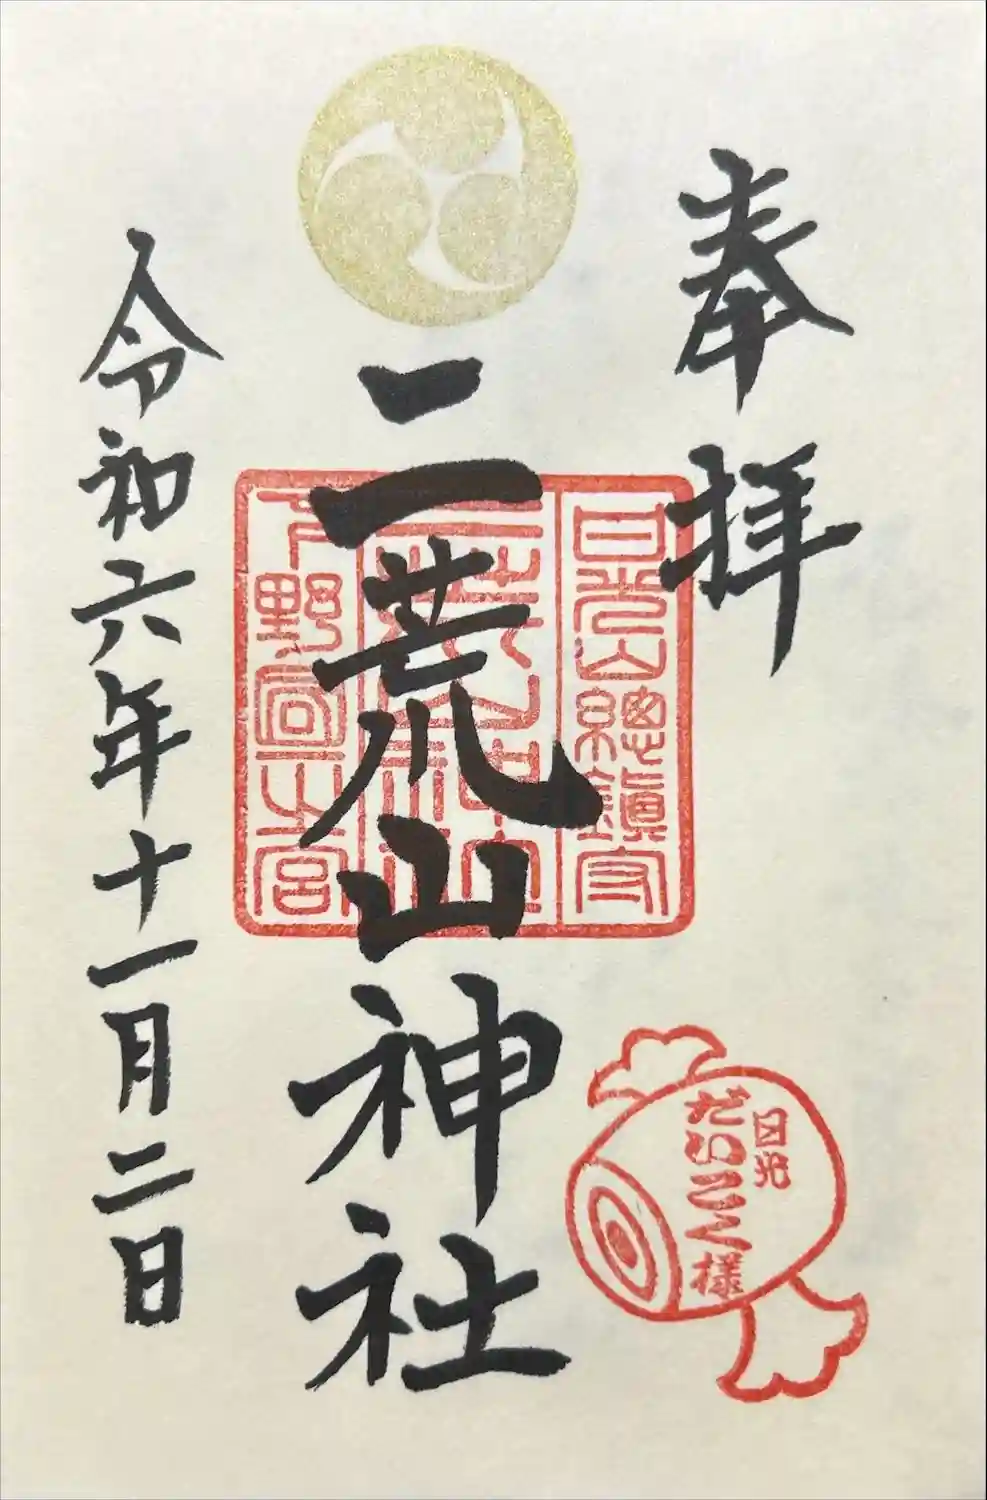 奉拝
日光山總鎮守
二荒山神社
下野國一之宮
二荒山神社
日光
だいこく様
令和六年十一月二日